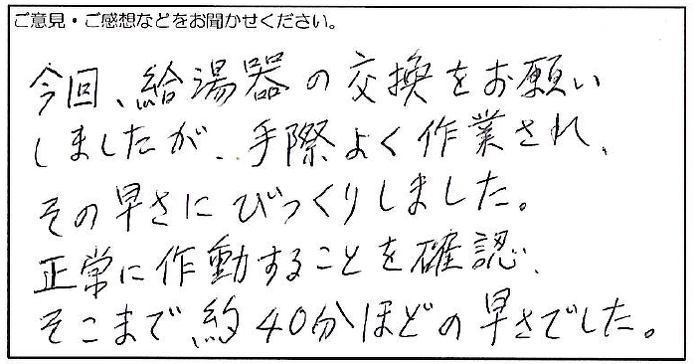 ご意見・ご感想などをお聞かせください。
今回、給湯器の交換をお願い
しましたが、手際よく作業され、
その早さにびっくりしました。
正常に作動することを確認、
そこまで約40分ほどの早さでした。